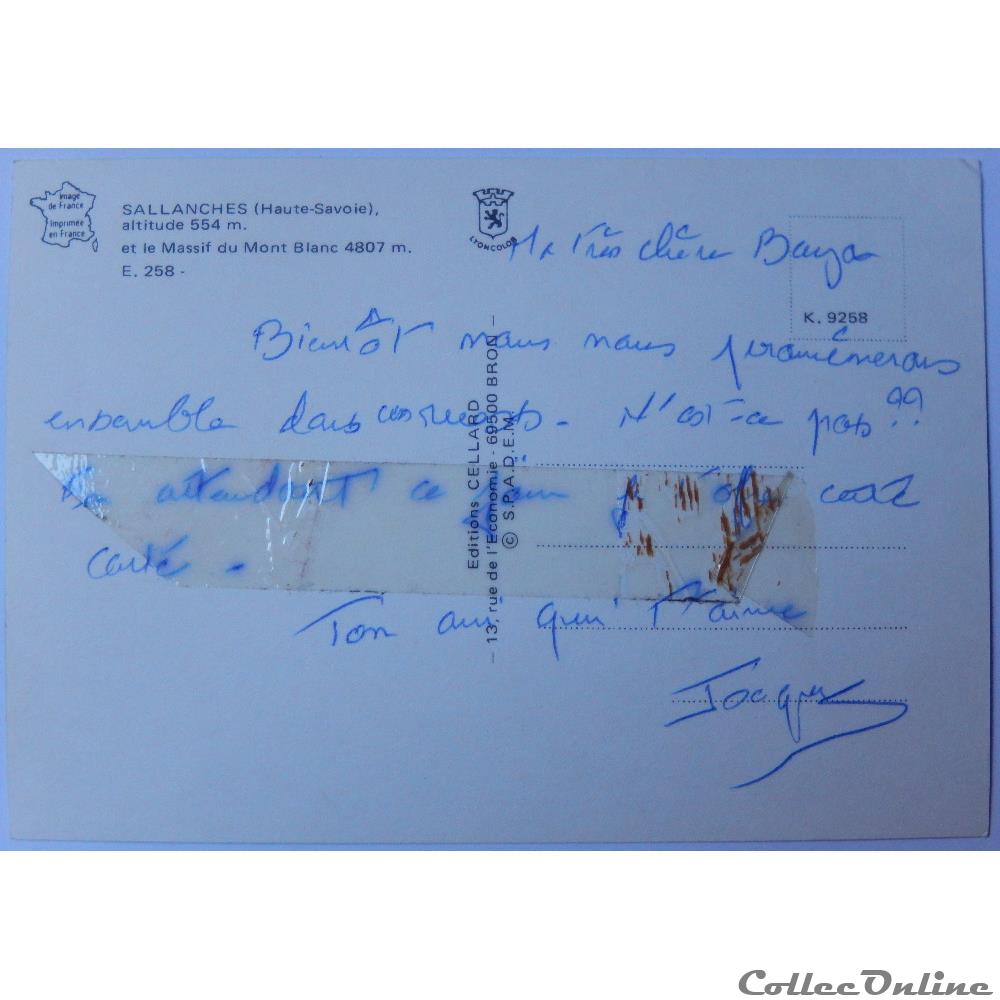 Image
de France
Imprimée
en France
SALLANCHES (Haute-Savoie),
altitude 554 m.
et le Massif du Mont Blanc 4807 m.
E. 258 -
LYONCOLOR
K. 9258
Editions CELLARD
– 13, rue de l'Economie - 69500 BRON –
© S.P.A.D.E.M.
Ma très chère
Bientôt nous nous promènerons
ensemble dans ces N'est-ce pas ??
En attendant ce cette
carte.
Ton ami qui t'aime
Jacques
CollecOnline